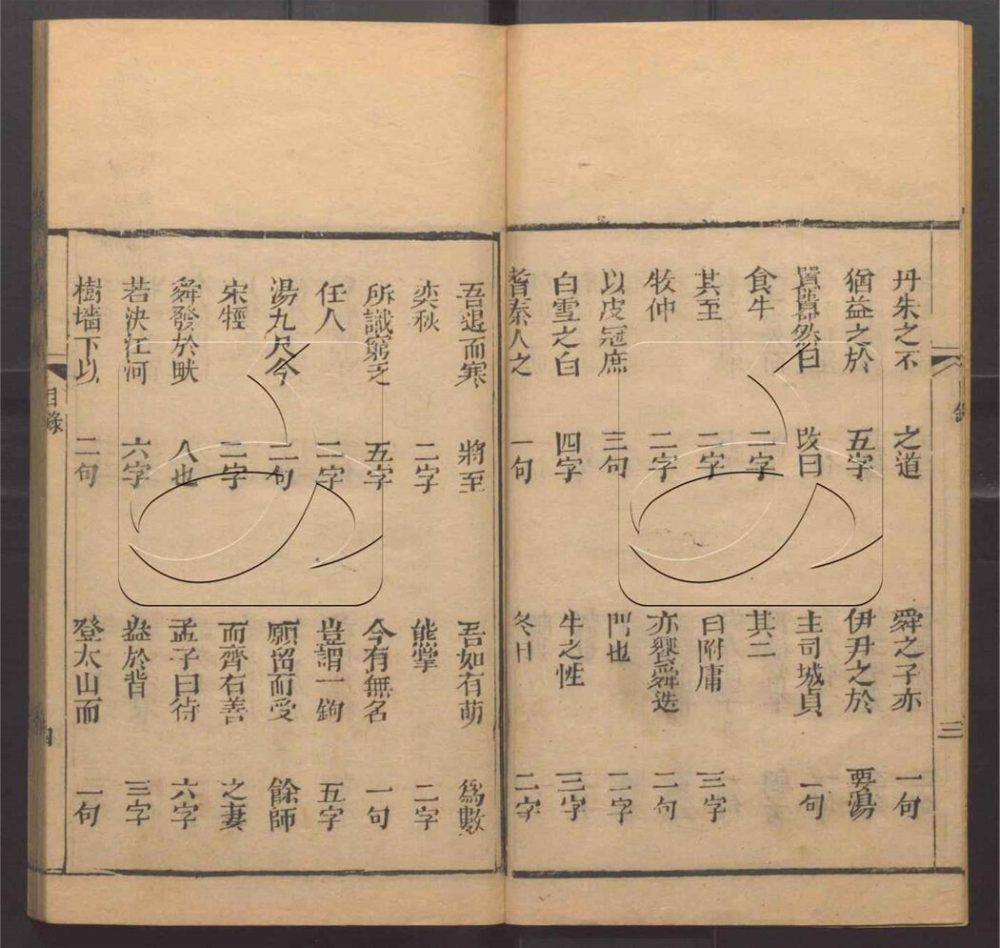 丹朱之不 之道 舜之子亦 一句
猶益之於 五字 伊尹之於 要湯
囂囂然曰 改曰 主司城貞 一句
食牛 二字 其二
其至 二字 曰附庸 三字
牧仲 二字 亦饗舜迭 二句
以皮冠庶 三句 門也 二字
白雪之白 四字 牛之性 三字
耆秦人之 一句 冬日 二字
三
吾退而寒 將至 吾如有萌 爲數
奕秋 二字 熊掌 二字
所識窮乏 五字 今有無名 一句
任人 二字 豈謂一鉤 五字
湯九尺今 二句 願留而受 餘師
宋牼 二字 而齊右善 之妻
舜發於畎 人也 孟子曰待 六字
若決江河 六字 盎於背 三字
樹墻下以 二句 登太山而 一句
目錄
四